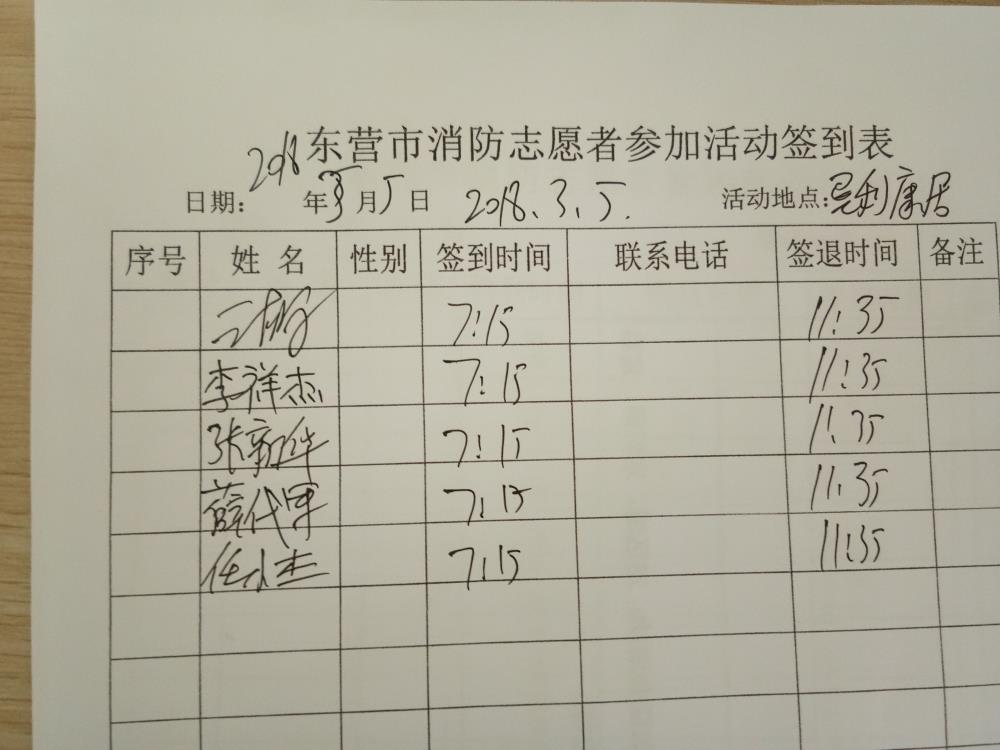 东营市消防志愿者参加活动签到表
日期: 2018年3月5日 2018.3.5. 活动地点: 利康居
序号 姓名 性别 签到时间 联系电话 签退时间 备注
7:15 11:35
李祥杰 7:15 11:35
张新华 7:15 11:35
薛代军 7:15 11:35
任小杰 7:15 11:35